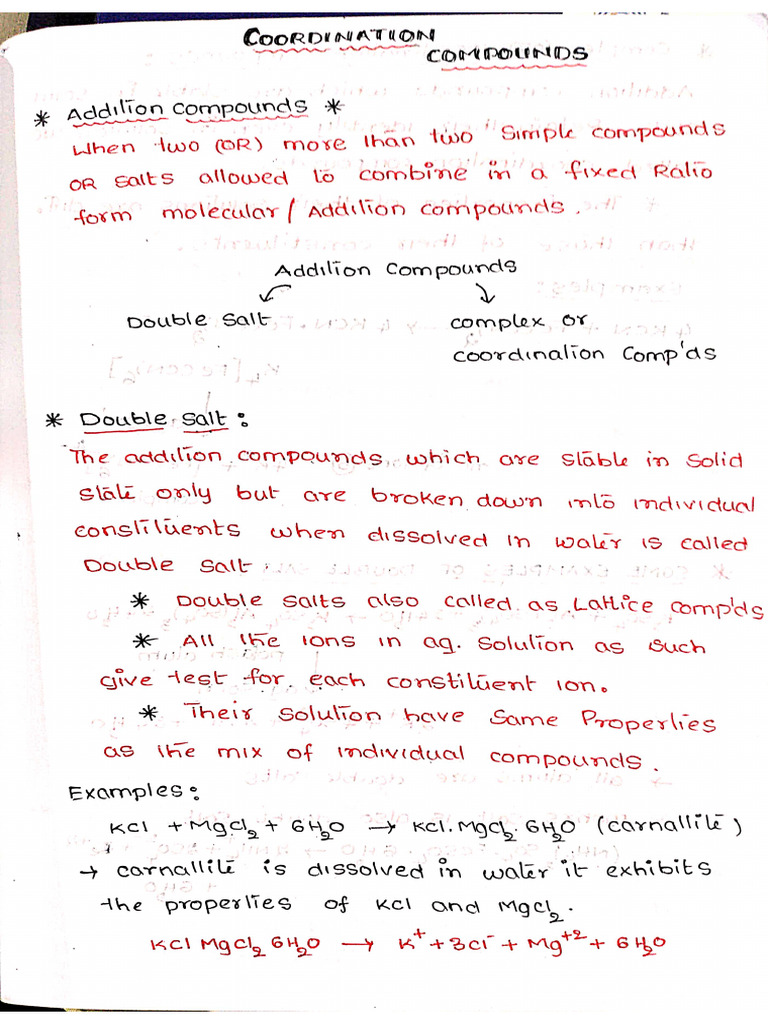 COORDINATION
COMPOUNDS
* Addition Compounds *
When two (OR) more than two Simple compounds
OR salts allowed to combine in a fixed Ratio
form molecular / Addition compounds.
Addition Compounds
Double Salt complex or
coordination Comp'ds
* Double Salt :
The addition compounds which are stable in solid
state only but are broken down into individual
constituents when dissolved in water is called
Double Salt.
* Double salts also called as Lattice comp'ds
* All the ions in aq. solution as such
give test for each constituent ion.
* Their solution have same Properties
as the mix of individual compounds.
Examples:
KCl + MgCl₂ + 6H₂O → KCl.MgCl₂.6H₂O (carnallite)
→ carnallite is dissolved in water it exhibits
the properties of KCl and MgCl₂.
KCl MgCl₂ 6H₂O → K⁺ + 3Cl⁻ + Mg⁺² + 6H₂O